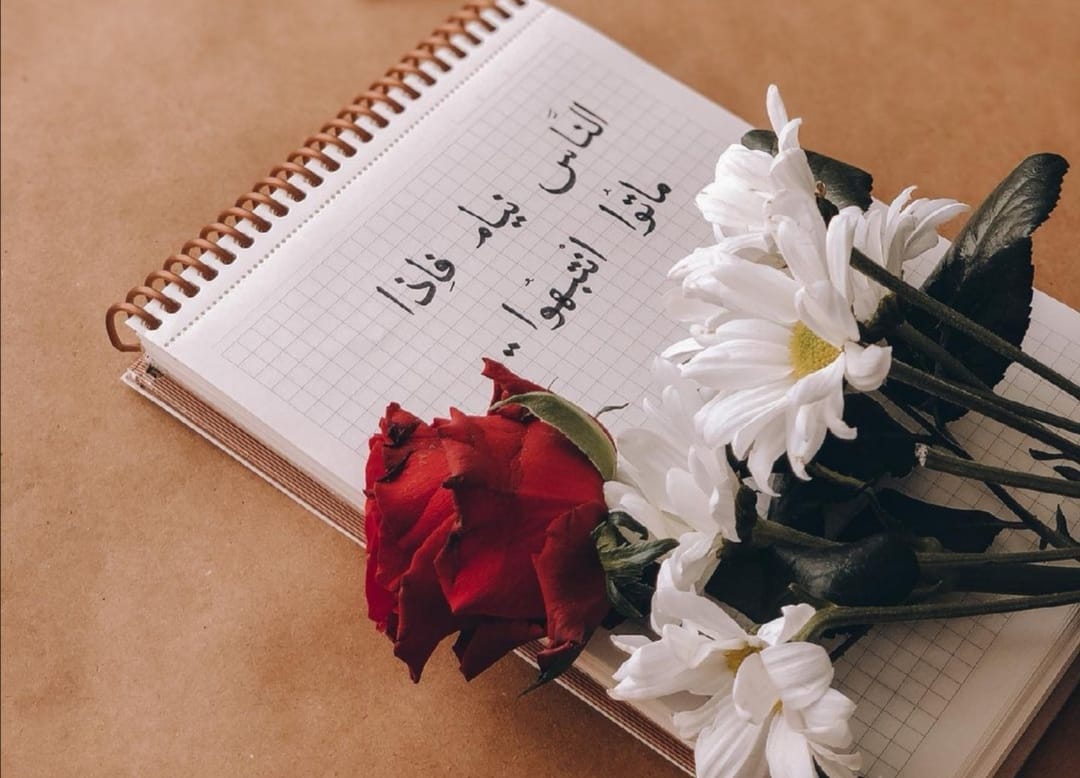 النَّاس نيام فإِذا
ماتُوا انتبهُوا ..